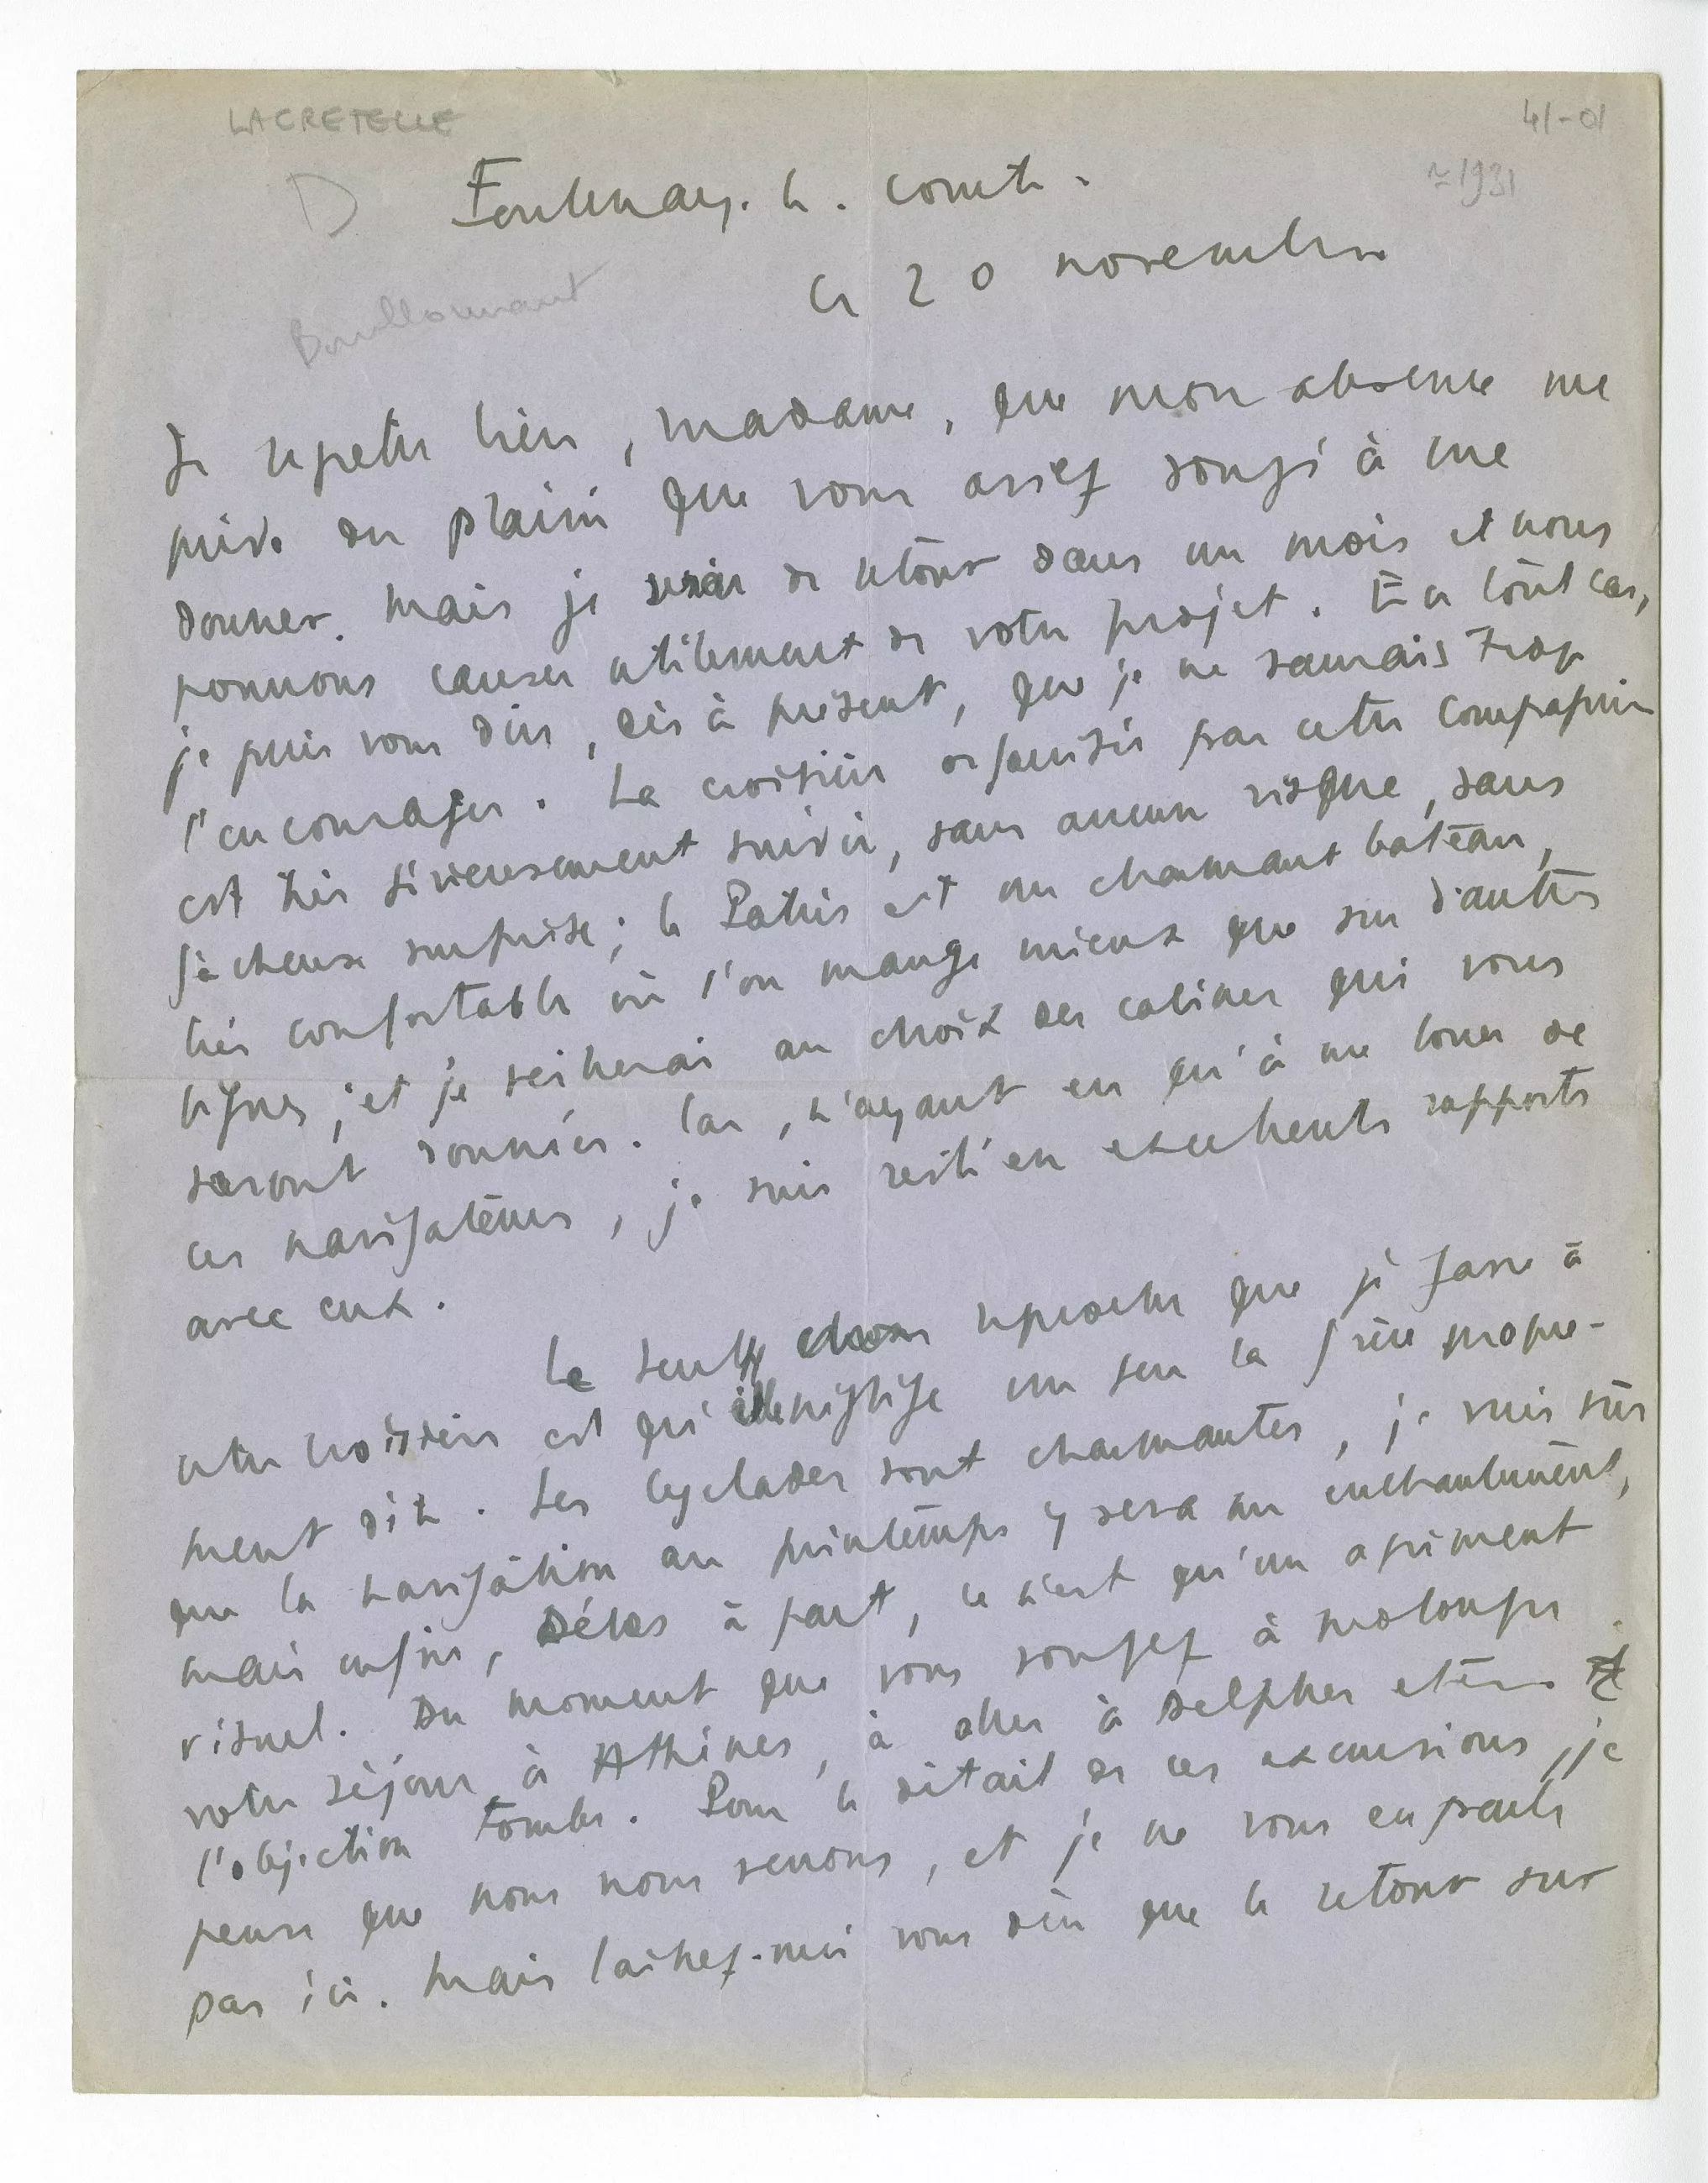 LACRETELLE
41-01
D
Fontenay. le. comte.
≈ 1931
ce 20 novembre
Bouillonnant
Je regrette bien, madame, que mon absence me
prive du plaisir que vous aviez songé à me
donner. Mais je serai de retour dans un mois et nous
pourrons causer utilement de votre projet. En tout cas,
je puis vous dire, dès à présent, que je ne saurais trop
l'encourager. La croisière organisée par cette compagnie
est très sérieusement suivie, sans aucun risque, sans
fâcheuse surprise ; le Patris est un charmant bateau,
très confortable où l'on mange mieux que sur d'autres
lignes ; et je veillerai au choix des cabines qui vous
seront données. Car, n'ayant eu qu'à me louer de
ces navigateurs, je suis resté en excellents rapports
avec eux.
Le seul reproche que je fasse à
cette croisière est qu'elle néglige un peu la Grèce propre-
ment dite. Les Cyclades sont charmantes, je suis sûr
que la navigation au printemps y sera un enchantement,
mais enfin, Délos à part, ce n'est qu'un agrément
visuel. Du moment que vous songez à prolonger
votre séjour à Athènes, à aller à Delphes etc
l'objection tombe. Pour le détail de ces excursions, je
pense que nous nous verrons, et je ne vous en parle
pas ici. Mais laissez-moi vous dire que le retour sur